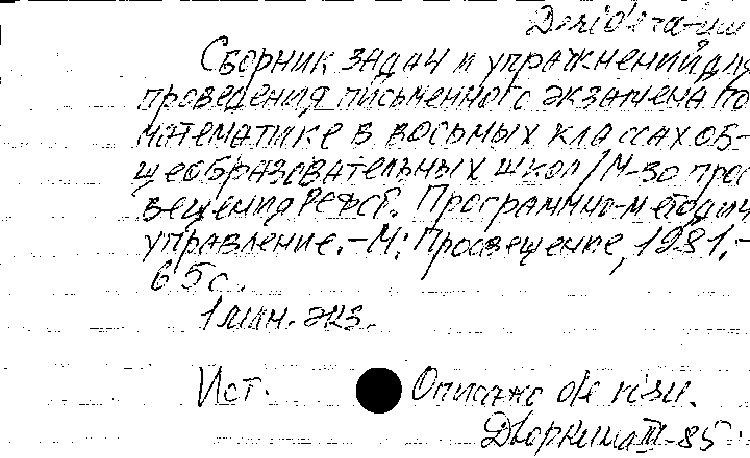 Desideratum
Сборник задач и упражнений для
проведения письменного экзамена по
математике в восьмых классах об-
щеобразовательных школ/М-во прос
вещения РСФСР. Программно-методич
управление.-М.: Просвещение, 1981.-
65с.
1 млн. экз.
Ист. Описано de visu.
III-85.